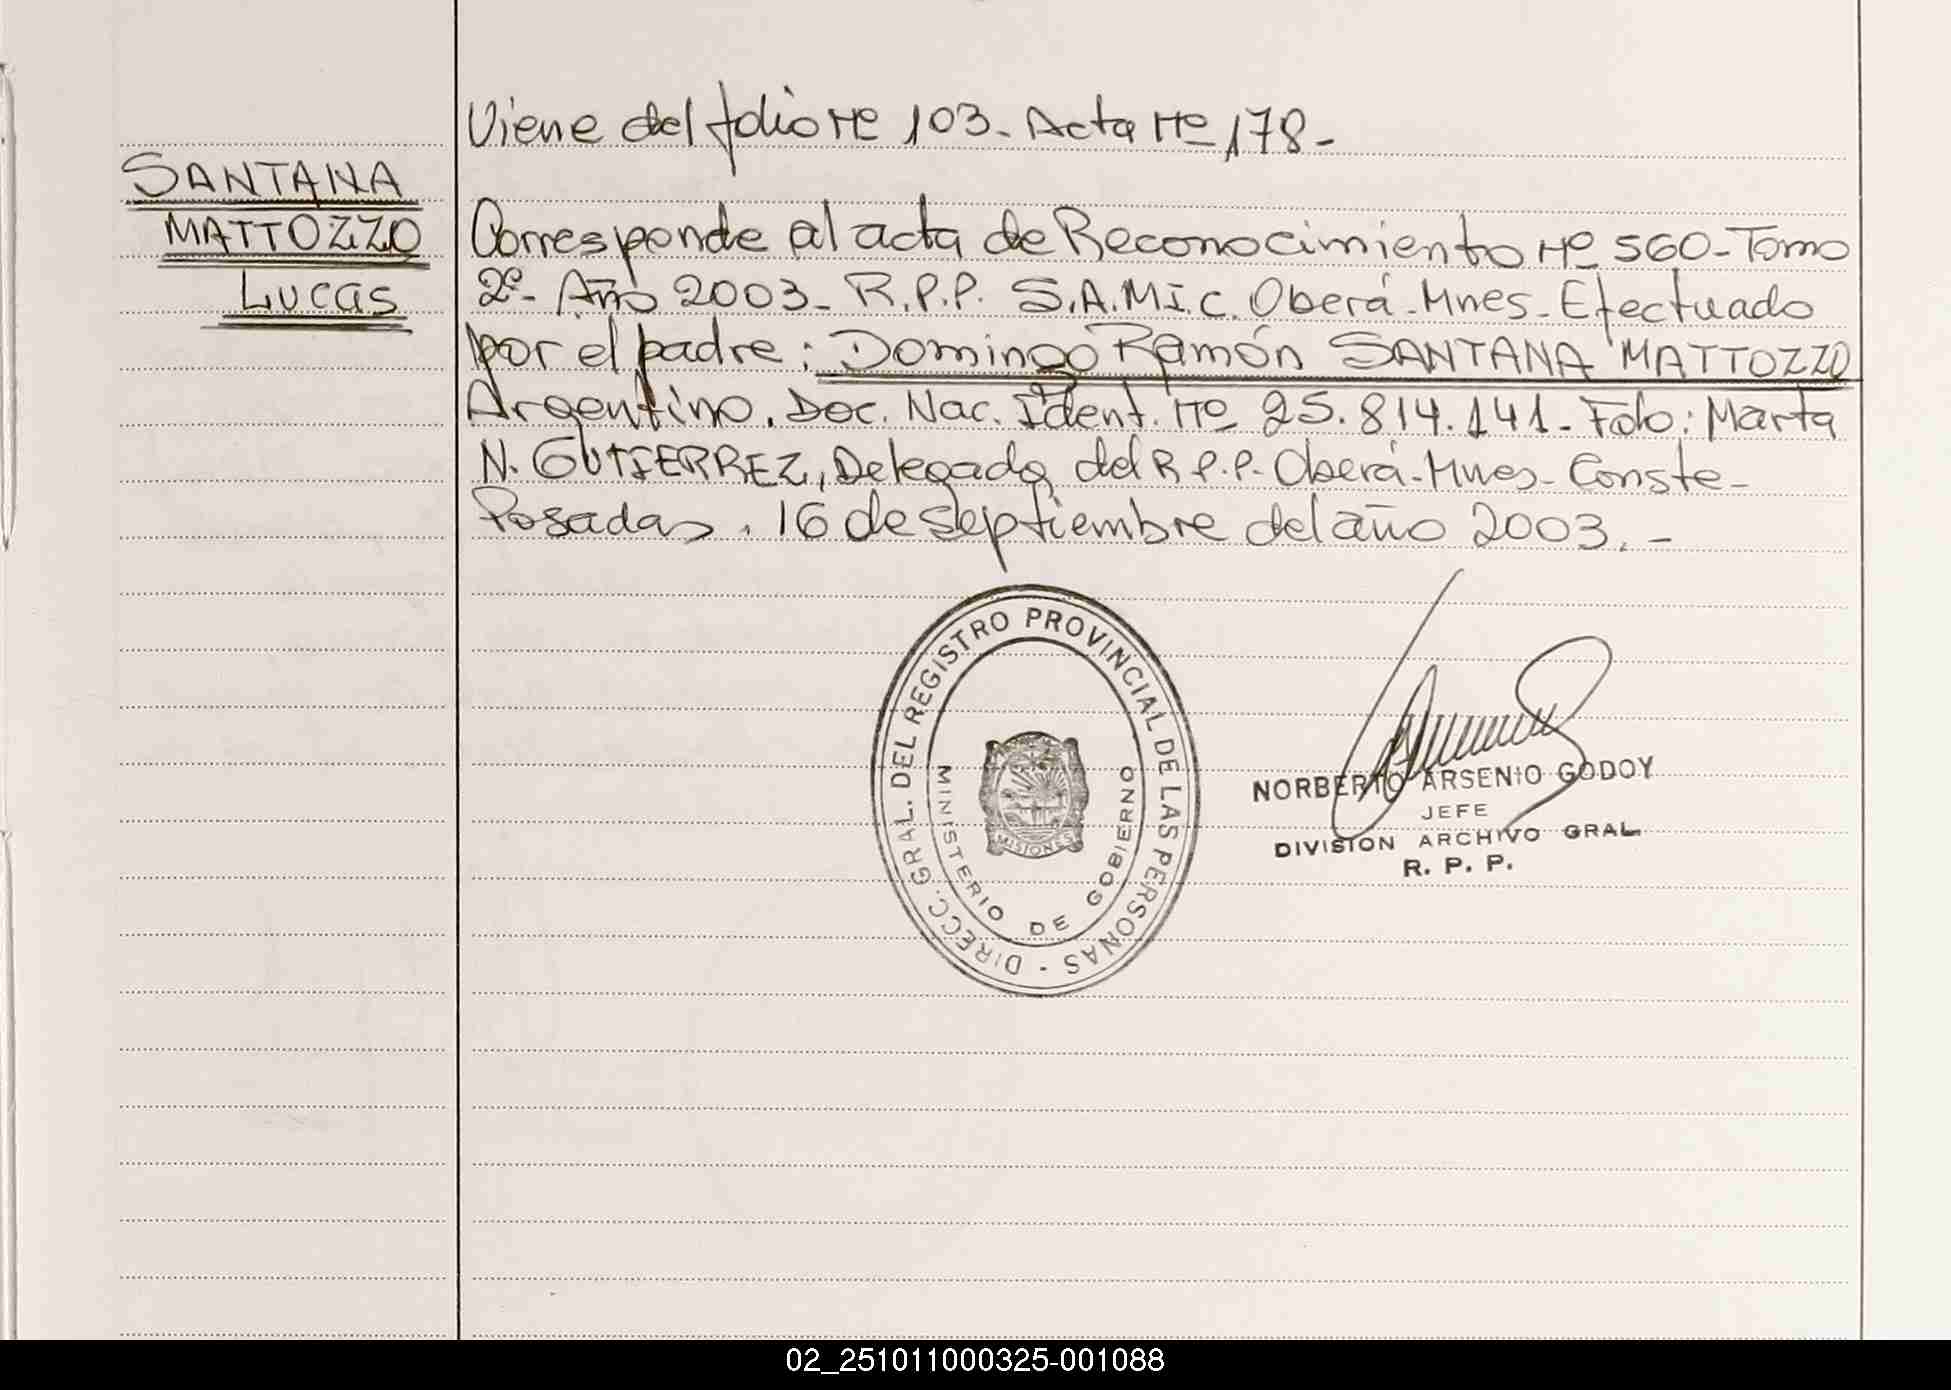 Viene del folio Nº 103. Acta Nº 178.-
SANTANA
MATTOZZO
Lucas
Corresponde al acta de Reconocimiento Nº 560-Tomo
2º- Año 2003- R.P.P. S.A.M.I.C. Oberá-Mnes- Efectuado
por el padre: Domingo Ramón SANTANA MATTOZZO
Argentino. Doc. Nac. Ident. Nº 25.814.141- Fdo: Marta
N. GUTIERREZ, Delegada del R.P.P. Oberá-Mnes- Conste-
Posadas, 16 de septiembre del año 2003.-
DIRECC. GRAL. DEL REGISTRO PROVINCIAL DE LAS PERSONAS -
MINISTERIO DE GOBIERNO
MISIONES
NORBERTO ARSENIO GODOY
JEFE
DIVISION ARCHIVO GRAL.
R. P. P.
02_251011000325-001088